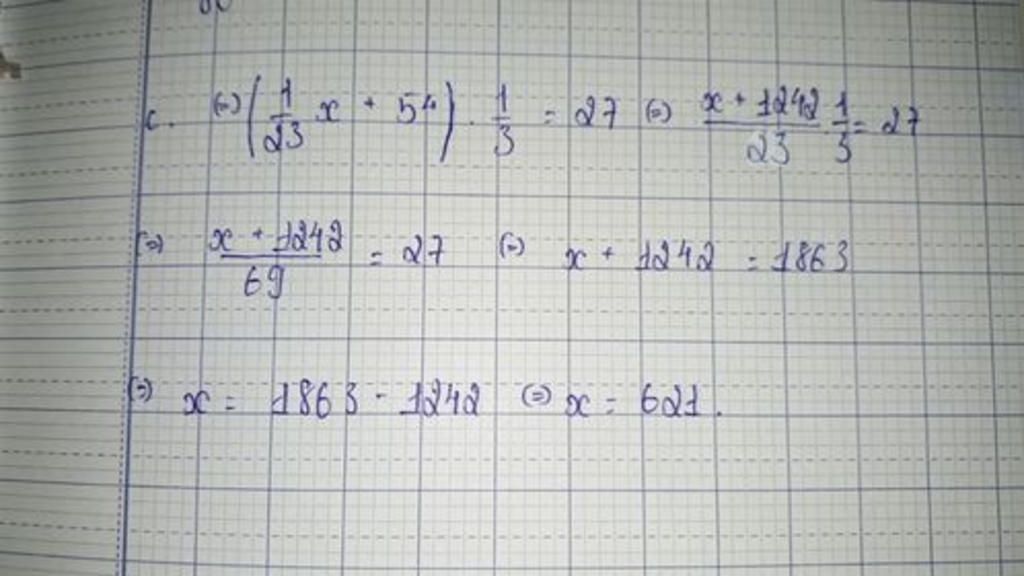 c. (=) (1/23 x + 54) . 1/3 = 27 (=) x + 1242/23 . 1/3 = 27
(=) x + 1242/69 = 27 (=) x + 1242 = 1863
(=) x = 1863 - 1242 (=) x = 621.